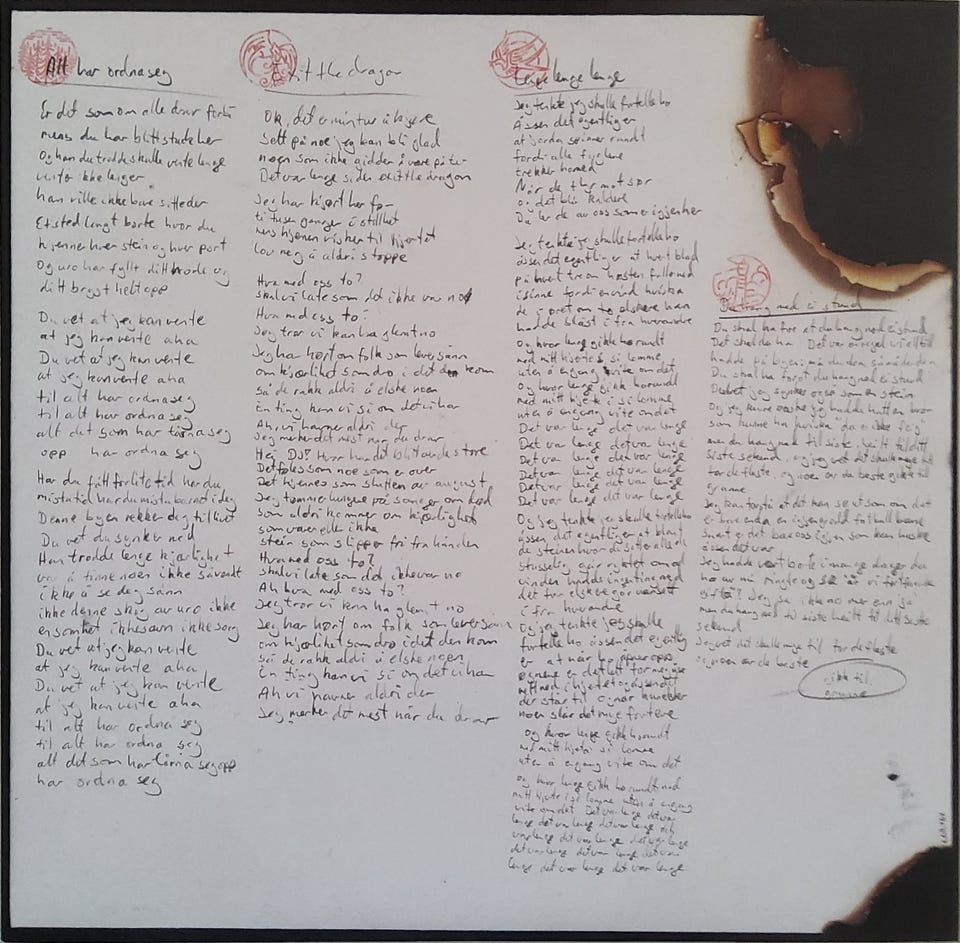 Alt har ordna seg
Er det som om alle drar forbi
mens du har blitt stude her
Og han du trodde skulle vente lenge
venta ikke lenger
han ville ikke bare sitte der
Et sted langt borte hvor du
kjenner hver stein og hver port
Og uro har fyllt ditt hode og
ditt bryst helt opp
Du vet at jeg kan vente
at jeg kan vente aha
Du vet at jeg kan vente
at jeg kan vente aha
til alt har ordna seg
til alt har ordna seg
alt det som har tårna seg
opp har ordna seg
Har du fått for lite tid har du
mista tid har du mista barnet i deg
Denne byen rekker deg til livet
Du vet du synker ned
Han trodde lenge kjærlighet
var å finne noen ikke såvendt
ikke å se deg sånn
ikke denne skjø av uro ikke
ensomhet ikke savn ikke sorg
Du vet at jeg kan vente
at jeg kan vente aha
Du vet at jeg kan vente
at jeg kan vente aha
til alt har ordna seg
til alt har ordna seg
alt det som har tårna seg opp
har ordna seg
Exit the dragon
Ok, det er min tur å kjøre
Sett på noe jeg kan bli glad
noen som ikke gidder å være på tv
Det var lenge siden exit the dragon
Jeg har kjørt her før
ti tusen ganger i stillhet
mens hjernen visker til hjertet
lov meg å aldri stoppe
Hva med oss to?
skal vi late som det ikke var no
Hva med oss to?
Jeg tror vi kan ha glemt no
Jeg har hørt om folk som lever sånn
om kjærlighet som dro i det den kom
så de rakk aldri å elske noen
En ting kan vi si om det vi har
Ah, vi havner aldri der
Jeg merker det mest når du drar
Hei Du? Hvor har det blitt av de store
Det føles som noe som er over
Det kjennes som slutten av august
Jeg tømmer lungene på sanger om død
som aldri kommer om kjærlighet
som varer elle ikke
stein som slipper fri fra hånden
Hva med oss to?
skal vi late som det ikke var no
Ah hva med oss to?
Jeg tror vi kan ha glemt no
Jeg har hørt om folk som lever sånn
om kjærlighet som dro i det den kom
Så de rakk aldri å elske noen
En ting kan vi si om det vi har
Ah vi havner aldri der
Jeg merker det mest når du drar
Lenge lenge lenge
Jeg tenkte jeg skulle fortelle ho
Åssen det egentlig er
at jorda spinner rundt
fordi alle fuglene
trekker hen med
Når de flyr mot sør
og det blir kaldere
Du er de av oss som er igjen her
Jeg tenkte jeg skulle fortelle ho
åssen det egentlig er at hvert blad
på hvert tre om høsten faller ned
i sinne fordi en vind hviska
de i øret om to elskere han
hadde blåst i fra hverandre
Og hvor lenge gikk ho rundt
med mitt hjerte i si lomme
uten å engang vite om det
Og hvor lenge gikk ho rundt
med mitt hjerte i si lomme
uten å engang vite om det
Det var lenge det var lenge
Det var lenge det var lenge
Det var lenge det var lenge
Det var lenge det var lenge
Det var lenge det var lenge
Det var lenge det var lenge
Og jeg tenkte jeg skulle fortelle ho
åssen det egentlig er at blant
de steinene hvor de sitter alle de
stusselig går ryktet om at
vinden hadde ingenting med
det fra elskere gør verset
i fra hverandre
Og ja tenkte jeg skulle
fortelle ho åssen det egentlig
er at når ho åpner opp
øynene er det lett for meg åse
midt ned i hjertet og åssen det
der står til og når hun ler
noen slår det mye fortere
Og hvor lenge gikk ho rundt
med mitt hjerte i si lomme
uten å engang vite om det
Og hvor lenge gikk ho rundt med
mitt hjerte i si lomme uten å engang
vite om det Det var lenge det var
lenge det var lenge det var lenge det
var lenge det var lenge det var lenge
det var lenge det var lenge det var
lenge det var lenge det var lenge
Du hang med ei stund
Du skal ha for at du hang med ei stund
Det skal du ha Det var en regel vi alltid
hadde på byen
Du skal ha for at du hang med ei stund
jeg synker også som en stein
Og jeg kunne ønske jeg hadde hatt en bror
som kunne ha hviska du er ikke feig
men du hang med til siste, heilt til ditt
siste sekund, og jeg vet det skulle mye til
for de fleste, og noen av de beste gikk til
grunne
Jeg kan forstå at det kan se ut som om det
er bare enda en igjengrodd fotballbane
snart er det bare oss igjen som kan huske
åssen det var
Jeg hadde vært borte i mange dager da
ho av mi ringte og sa at vi fortjente
ofte? Jeg sa ikke no mer enn ja
men du hang med til siste heilt til ditt siste
sekund
Jeg vet det skulle mye til for de fleste
og noen av de beste
gikk til
grunne